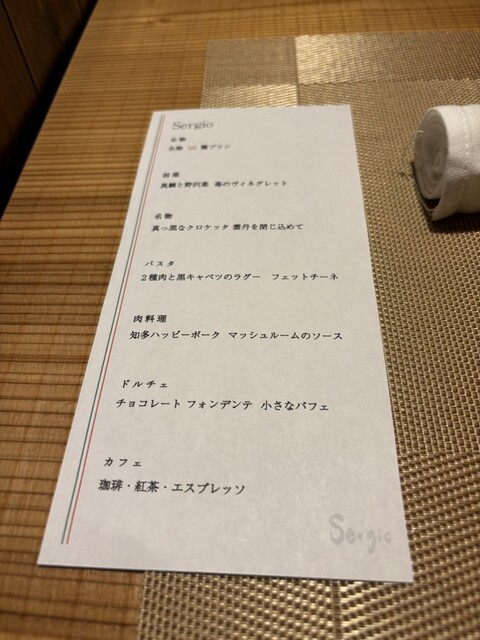 Sergio
名物
名物 🦀 蟹プリン
前菜
真鯛と野沢菜 苺のヴィネグレット
名物
真っ黒なクロケッタ 雲丹を閉じ込めて
パスタ
2種肉と黒キャベツのラグー フェットチーネ
肉料理
知多ハッピーポーク マッシュルームのソース
ドルチェ
チョコレート フォンデンテ 小さなパフェ
カフェ
珈琲・紅茶・エスプレッソ
Sergio